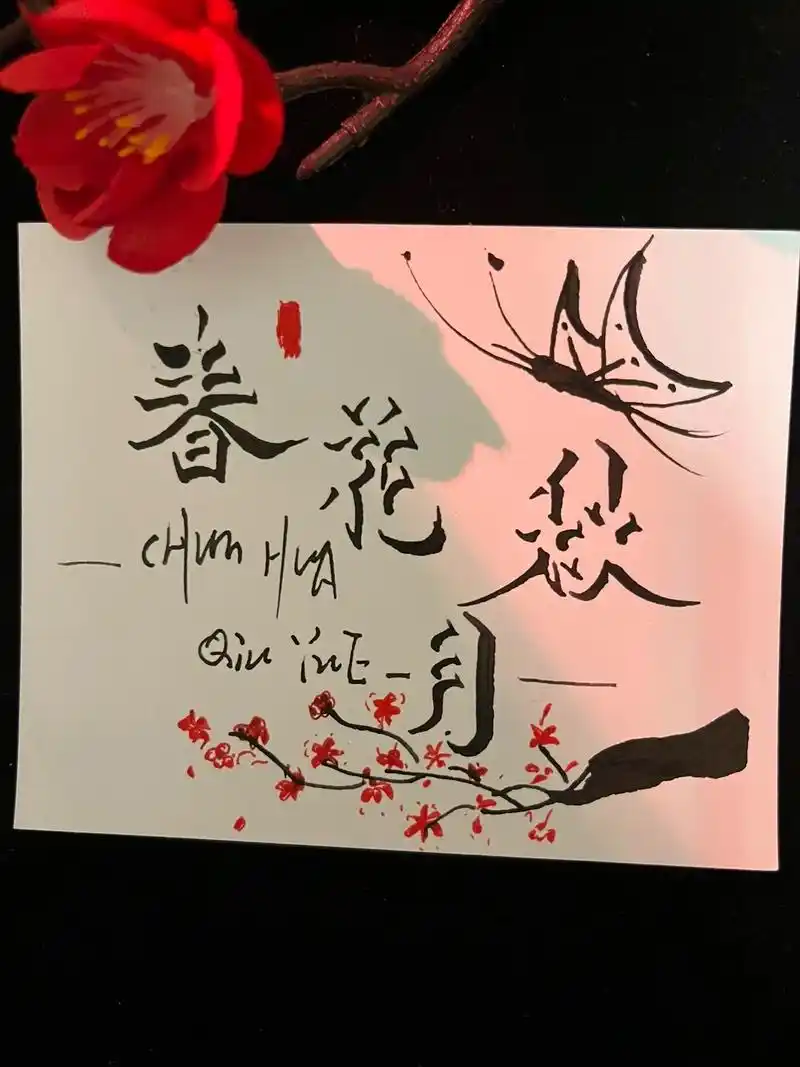 春花秋月
CHUN HUA
QiU YUE